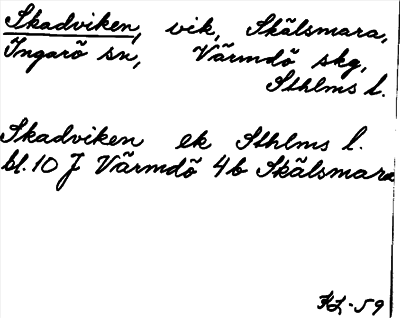 Skadviken, vik, Skälsmara,
Ingarö sn, Värmdö skg,
Sthlms l.
Skadviken ek Sthlms l.
bl. 10 J Värmdö 4b Skälsmara
KL-59